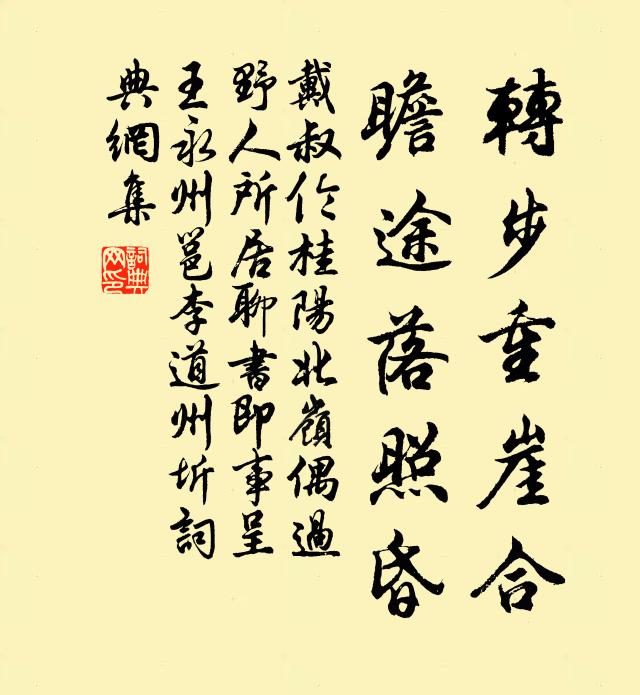 轉步重崖合
瞻途落照昏
戴叔倫桂陽北嶺偶過
野人所居聊書即事呈
王永州邕李道州圻詞
典網集
詞典
网印